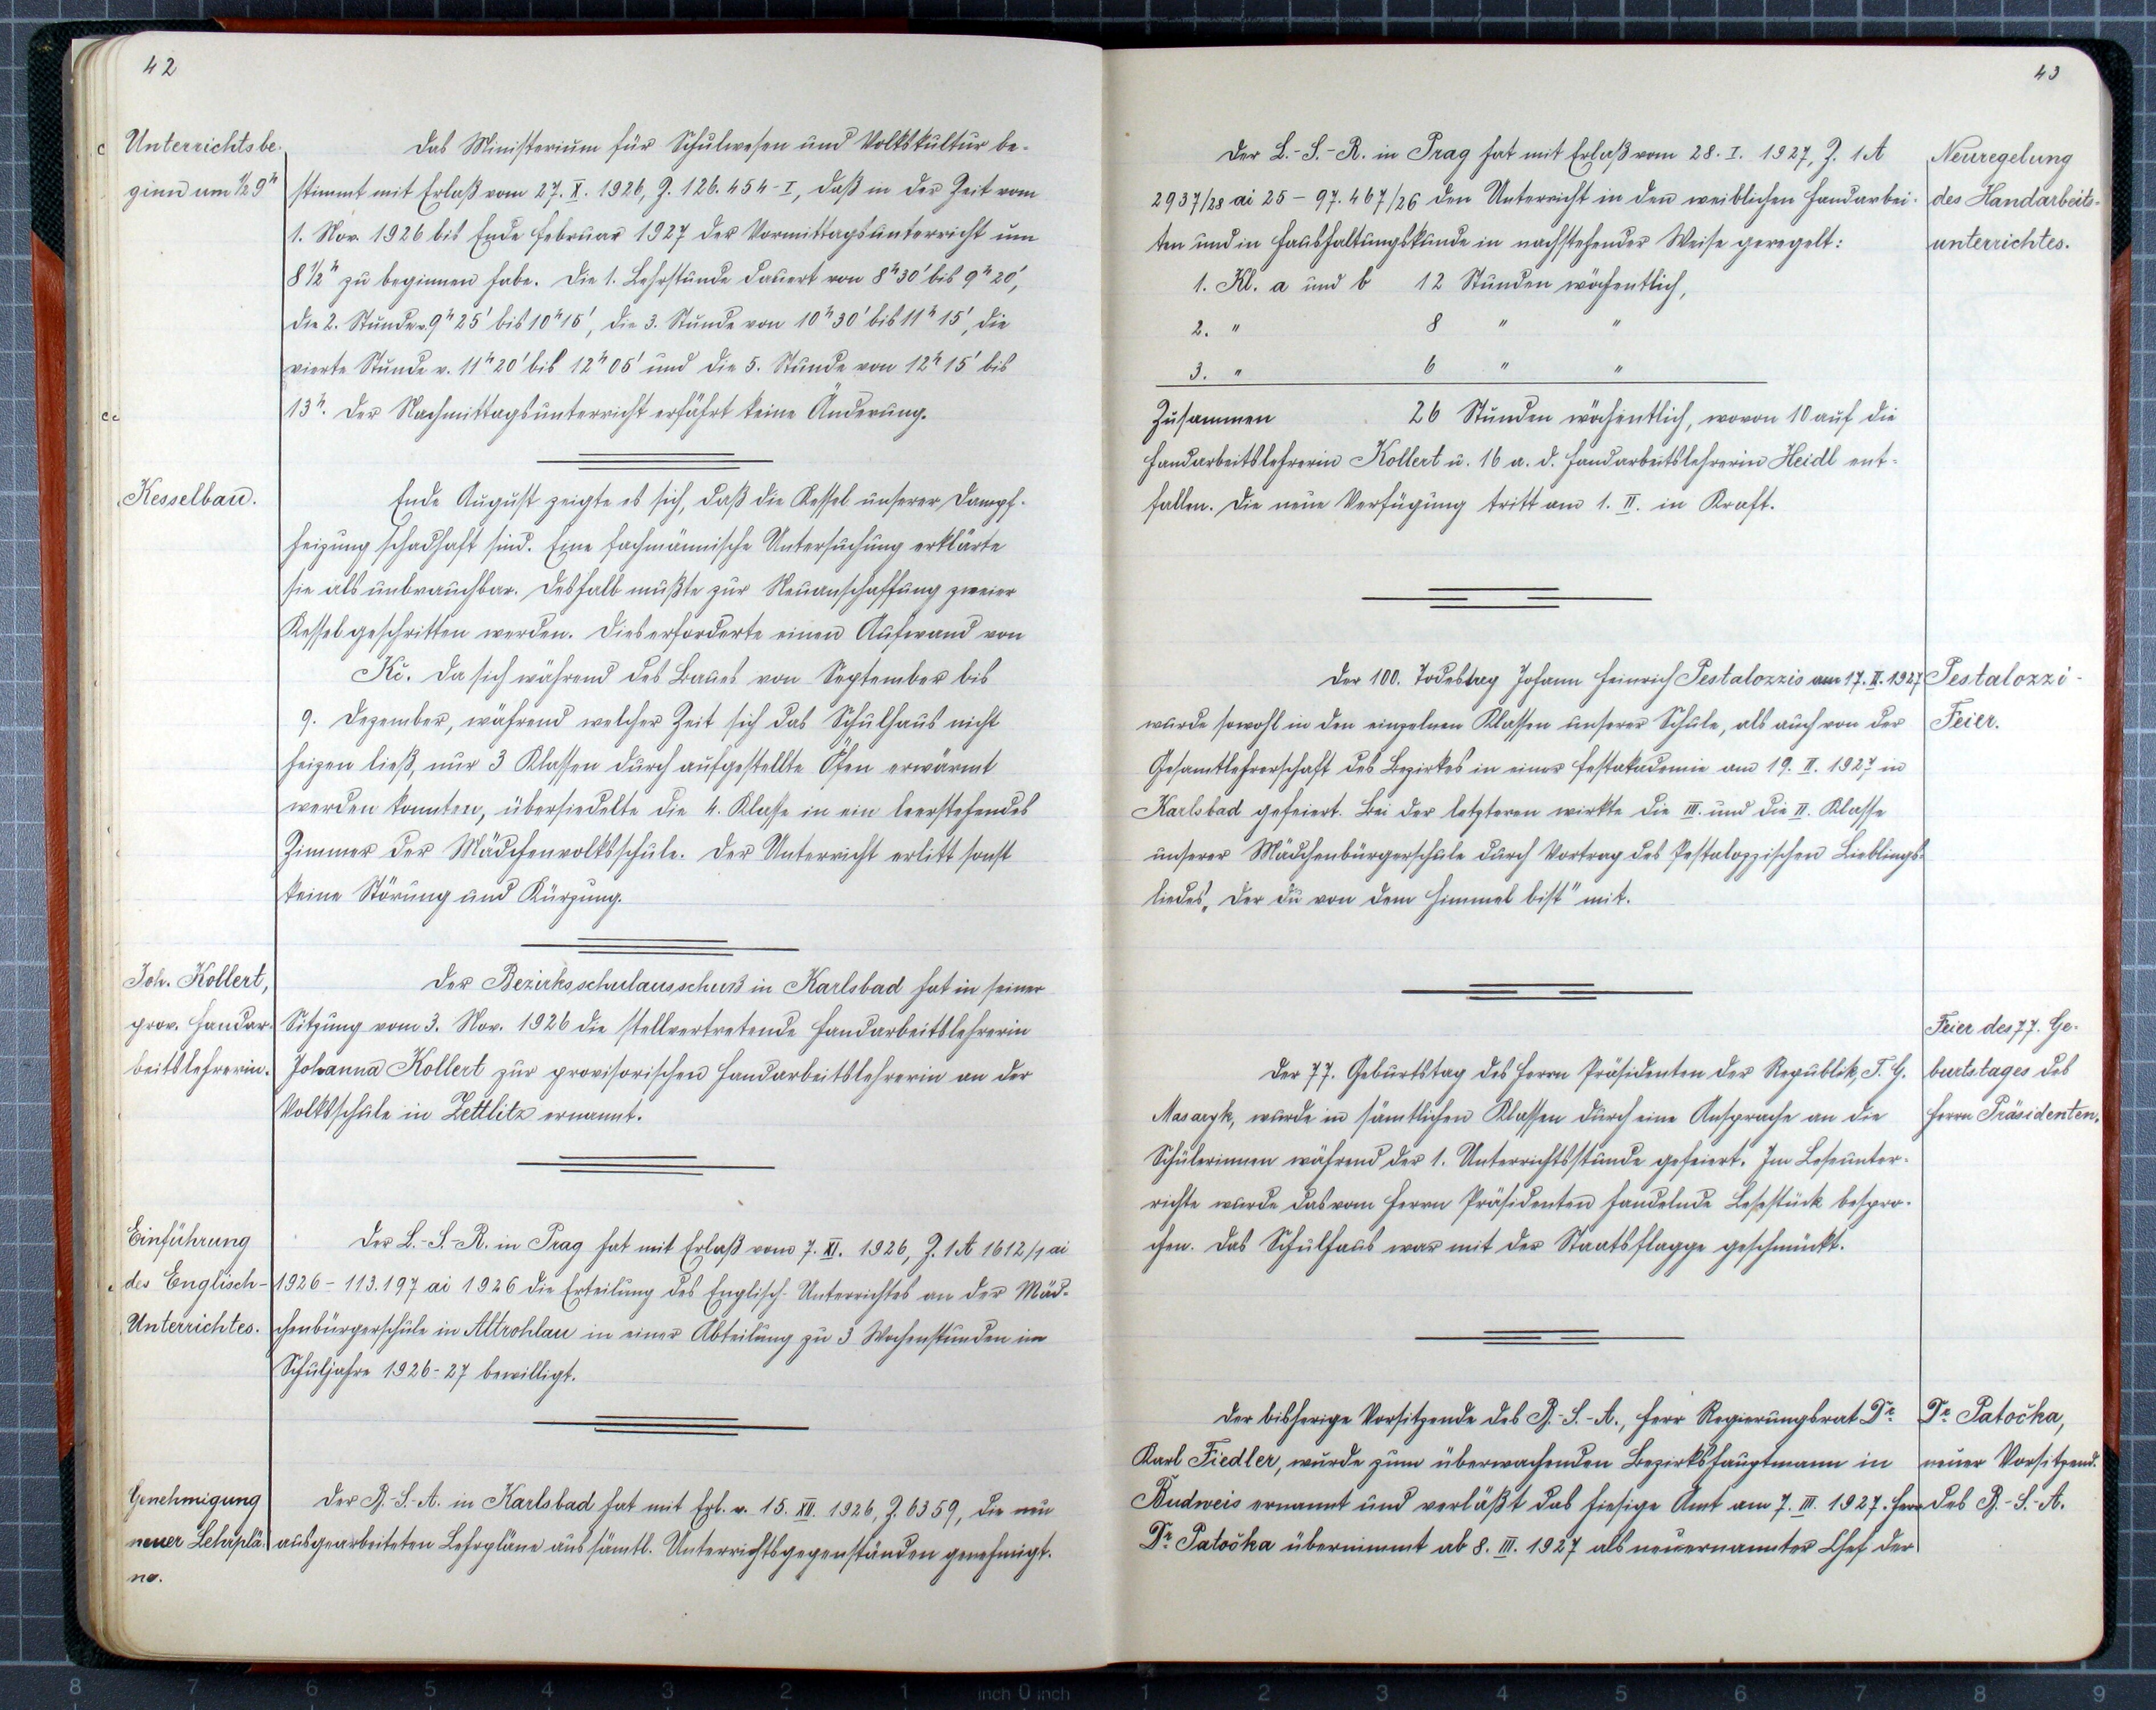 42
Unterrichtsbe-
ginn um ½ 9ʰ
Das Ministerium für Schulwesen und Volkskultur be-
stimmt mit Erlaß vom 27. X. 1926, Z. 126.454-I, daß in der Zeit vom
1. Nov. 1926 bis Ende Februar 1927 der Vormittagsunterricht um
8 ½ʰ zu beginnen habe. Die 1. Lehrstunde dauert von 8ʰ30' bis 9ʰ20',
die 2. Stunde v. 9ʰ25' bis 10ʰ15', die 3. Stunde von 10ʰ30' bis 11ʰ15', die
vierte Stunde v. 11ʰ20' bis 12ʰ05' und die 5. Stunde von 12ʰ15' bis
13ʰ. Der Nachmittagsunterricht erfährt keine Änderung.
Kesselbau.
Ende August zeigte es sich, daß die Kessel unserer Dampf-
heizung schadhaft sind. Eine fachmännische Untersuchung erklärte
sie als unbrauchbar. Deshalb mußte zur Neuanschaffung zweier
Kessel geschritten werden. Dies erforderte einen Aufwand von
Kč. Da sich während des Baues von September bis
9. Dezember, während welcher Zeit sich das Schulhaus nicht
heizen ließ, nur 3 Klassen durch aufgestellte Öfen erwärmt
werden konnten, übersiedelte die 4. Klasse in ein leerstehendes
Zimmer der Mädchenvolksschule. Der Unterricht erlitt sonst
keine Störung und Kürzung.
Joh. Kollert,
prov. Handar-
beitslehrerin.
Der Bezirksschulausschuß in Karlsbad hat in seiner
Sitzung vom 3. Nov. 1926 die stellvertretende Handarbeitslehrerin
Johanna Kollert zur provisorischen Handarbeitslehrerin an der
Volksschule in Zettlitz ernannt.
Einführung
des Englisch-
Unterrichtes.
Der L.-S.-R. in Prag hat mit Erlaß vom 7. XI. 1926, Z. 1A 1612/1 ai
1926 - 113.197 ai 1926 die Erteilung des Englisch-Unterrichtes an der Mäd-
chenbürgerschule in Altrohlau in einer Abteilung zu 3 Wochenstunden im
Schuljahre 1926-27 bewilligt.
Genehmigung
neuer Lehrplä-
ne.
Der B.-S.-A. in Karlsbad hat mit Erl. v. 15. XII. 1926, Z. 6359, die neu
ausgearbeiteten Lehrpläne aus sämtl. Unterrichtsgegenständen genehmigt.
43
Der L.-S.-R. in Prag hat mit Erlaß vom 28. I. 1927, Z. 1A
2937/28 ai 25 - 97.467/26 den Unterricht in den weiblichen Handarbei-
ten und in Haushaltungskunde in nachstehender Weise geregelt:
1. Kl. a und b 12 Stunden wöchentlich,
2. " 8 " "
3. " 6 " "
Zusammen 26 Stunden wöchentlich, wovon 10 auf die
Handarbeitslehrerin Kollert u. 16 a. d. Handarbeitslehrerin Heidl ent-
fallen. Die neue Verfügung tritt am 1. II. in Kraft.
Neuregelung
des Handarbeits-
unterrichtes.
Der 100. Todestag Johann Heinrich Pestalozzis am 17. II. 1927
wurde sowohl in den einzelnen Klassen unserer Schule, als auch von der
Gesamtlehrerschaft des Bezirkes in einer Festakademie am 19. II. 1927 in
Karlsbad gefeiert. Bei der letzteren wirkte die III. und die II. Klasse
unserer Mädchenbürgerschule durch Vortrag des Pestalozzischen Lieblings-
liedes „Der du von dem Himmel bist" mit.
Pestalozzi-
Feier.
Der 77. Geburtstag des Herrn Präsidenten der Republik, T. G.
Masaryk, wurde in sämtlichen Klassen durch eine Ansprache an die
Schülerinnen während der 1. Unterrichtsstunde gefeiert. Im Leseunter-
richte wurde das vom Herrn Präsidenten handelnde Lesestück bespro-
chen. Das Schulhaus war mit der Staatsflagge geschmückt.
Feier des 77. Ge-
burtstages des
Herrn Präsidenten.
Der bisherige Vorsitzende des B.-S.-A., Herr Regierungsrat Dr.
Karl Fiedler, wurde zum überwachenden Bezirkshauptmann in
Budweis ernannt und verläßt das hiesige Amt am 7. III. 1927. Herr
Dr. Patočka übernimmt ab 8. III. 1927 als neuernannter Chef der
Dr. Patočka,
neuer Vorsitzend.
des B.-S.-A.
8 7 6 5 4 3 2 1 inch 0 inch 1 2 3 4 5 6 7 8 9